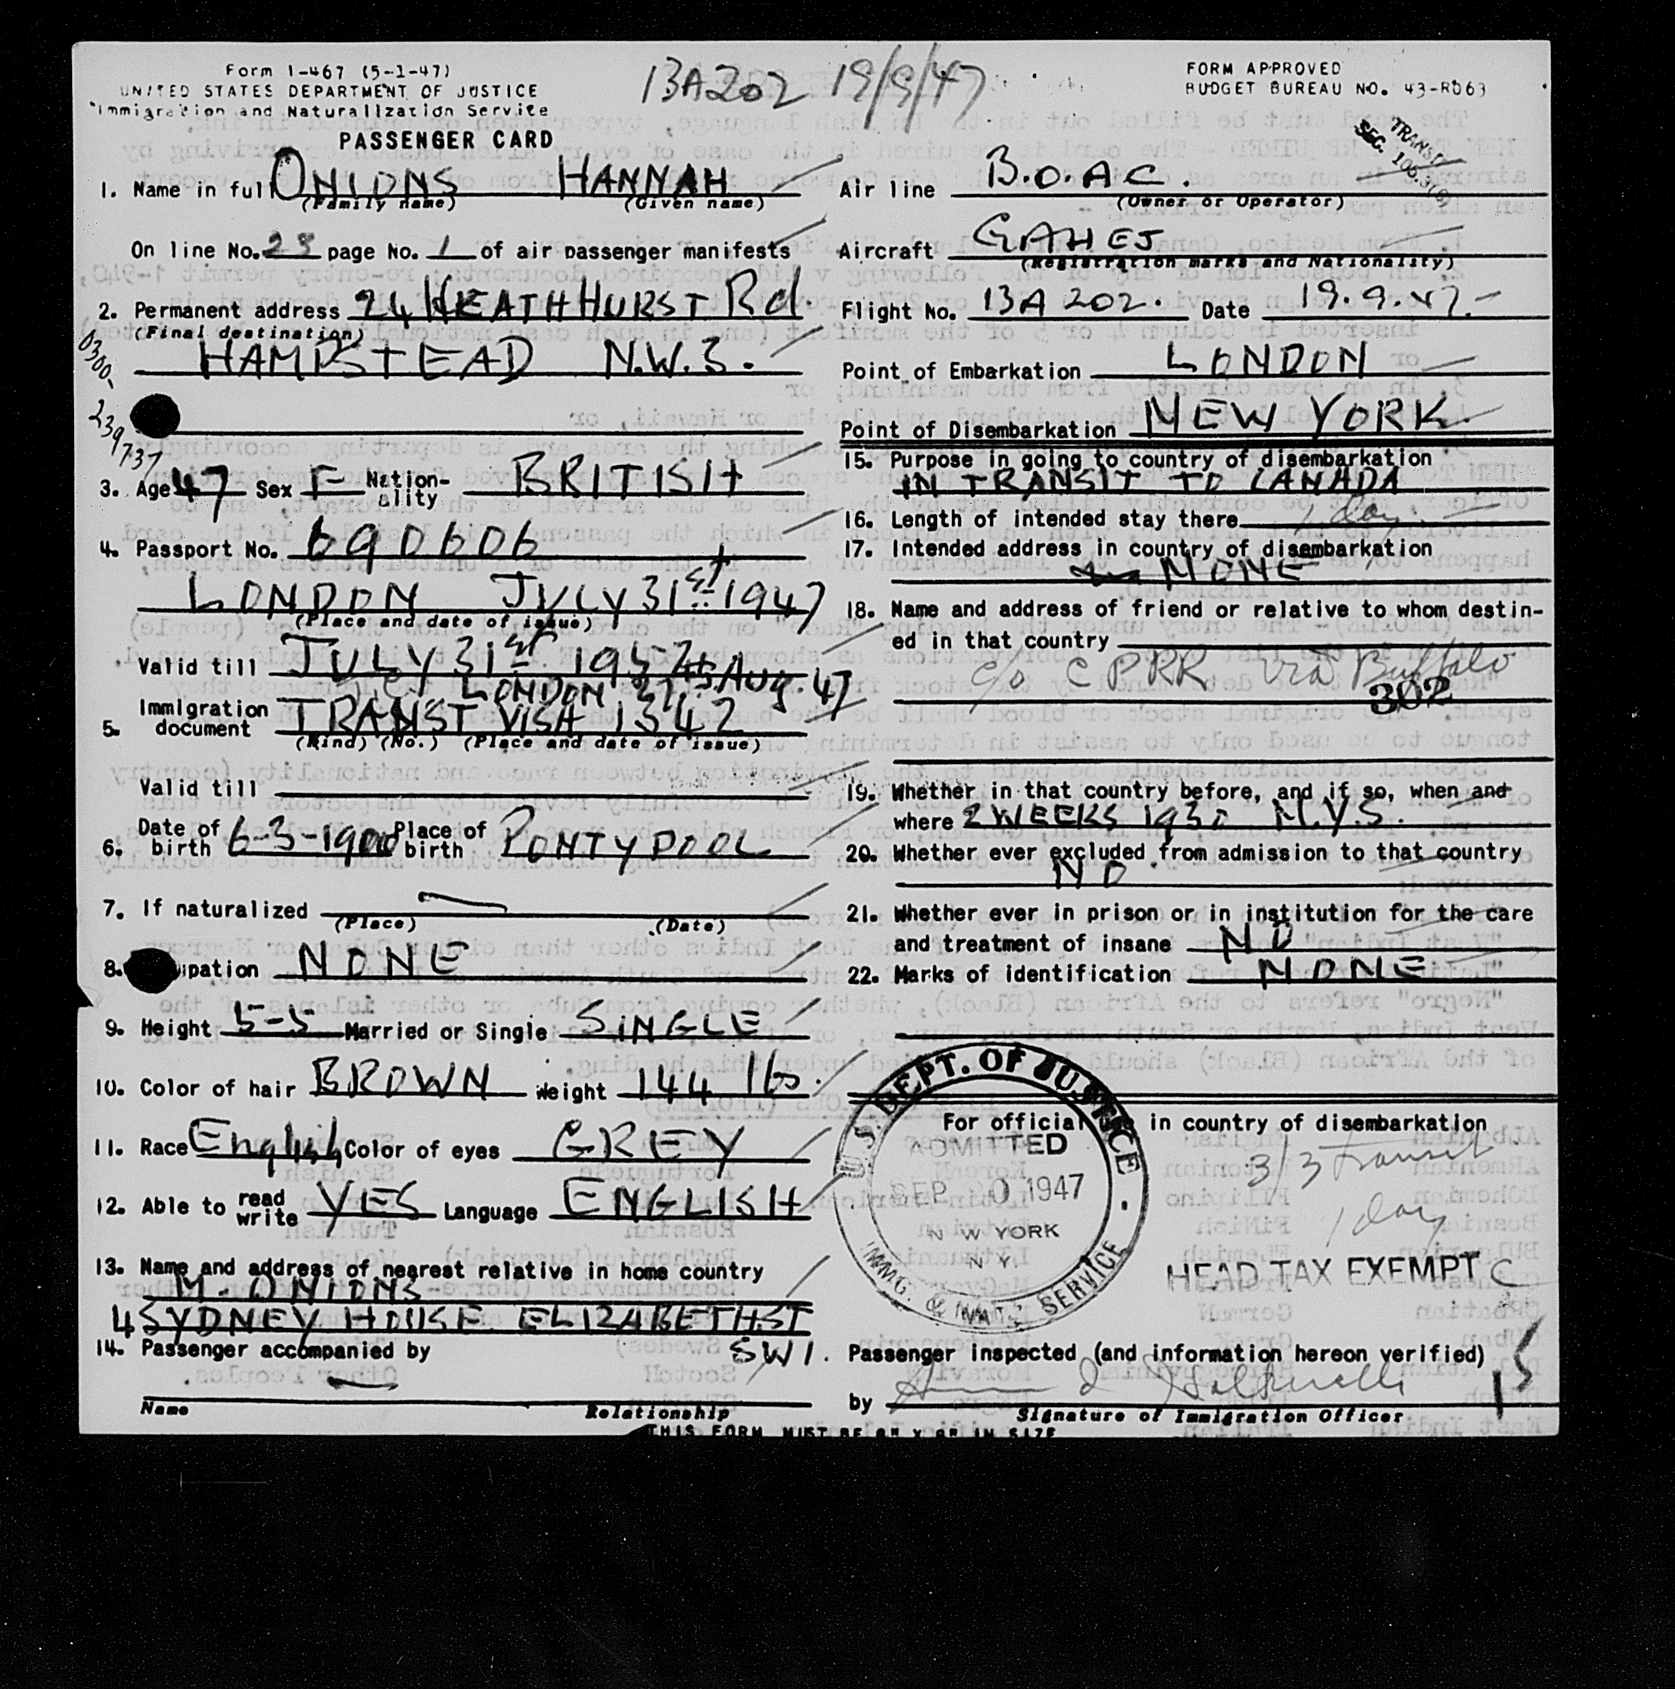 Form I-467 (5-1-47)
UNITED STATES DEPARTMENT OF JUSTICE
Immigration and Naturalization Service
PASSENGER CARD
BA202 19/9/47
FORM APPROVED
BUDGET BUREAU NO. 43-R063
TRANSIT
SEC.
1. Name in full ONIONS HANNAH
(Family name) (Given name)
On line No. 23 page No. 1 of air passenger manifests
2. Permanent address 24 HEATHHURST Rd.
(Final destination)
HAMPSTEAD N.W.3.
0300-
239737
3. Age 47 Sex F Nation-ality BRITISH
4. Passport No. 690606
LONDON JULY 31st 1947
(Place and date of issue)
Valid till JULY 31st 1952
LONDON 27th Aug. 47
5. Immigration document TRANST VISA 1342
(Kind) (No.) (Place and date of issue)
Valid till
6. Date of birth 6-3-1900 Place of birth PONTYPOOL
7. If naturalized
(Place) (Date)
8. upation NONE
9. Height 5-5 Married or Single SINGLE
10. Color of hair BROWN Weight 144 lbs.
11. Race English Color of eyes GREY
12. Able to read write YES Language ENGLISH
13. Name and address of nearest relative in home country
M. ONIONS
4 SYDNEY HOUSE ELIZABETH ST
SW1.
14. Passenger accompanied by
Name Relationship
THIS FORM MUST BE 8" X 8" IN SIZE
Air line B.O.A.C.
(Owner or Operator)
Aircraft GAHEJ
(Registration marks and Nationality)
Flight No. BA 202. Date 19.9.47.
Point of Embarkation LONDON
Point of Disembarkation NEW YORK.
15. Purpose in going to country of disembarkation
IN TRANSIT TO CANADA
16. Length of intended stay there 1 day.
17. Intended address in country of disembarkation
NONE
18. Name and address of friend or relative to whom destin-
ed in that country
c/o C P RR via Buffalo
302
19. Whether in that country before, and if so, when and
where 2 WEEKS 1930 N.Y.S.
20. Whether ever excluded from admission to that country
NO.
21. Whether ever in prison or in institution for the care
and treatment of insane NO
22. Marks of identification NONE
For official in country of disembarkation
U.S. DEPT. OF JUSTICE
ADMITTED
SEP 0 1947
N W YORK
N Y.
IMMG. & NAT'Z SERVICE
3/3 transit
1 day
HEAD TAX EXEMPT C
Passenger inspected (and information hereon verified)
by
Signature of Immigration Officer